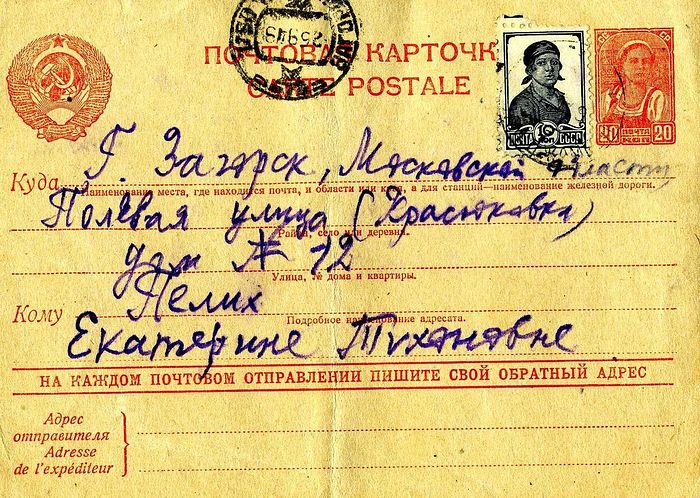 ПОЧТОВАЯ КАРТОЧК
CARTE POSTALE
ПОЧТА 10 КОП СССР
ПОЧТА
20 КОП 20
Куда Г. Загорск, Московской области
Наименование места, где находится почта, и области или края, а для станций—наименование железной дороги.
Полевая улица (Красюковка)
Район, село или деревня.
дом № 12
Улица, № дома и квартиры.
Кому Пелих
Подробное наименование адресата.
Екатерине Тихоновне
НА КАЖДОМ ПОЧТОВОМ ОТПРАВЛЕНИИ ПИШИТЕ СВОЙ ОБРАТНЫЙ АДРЕС
Адрес
отправителя
Adresse
de l'expéditeur